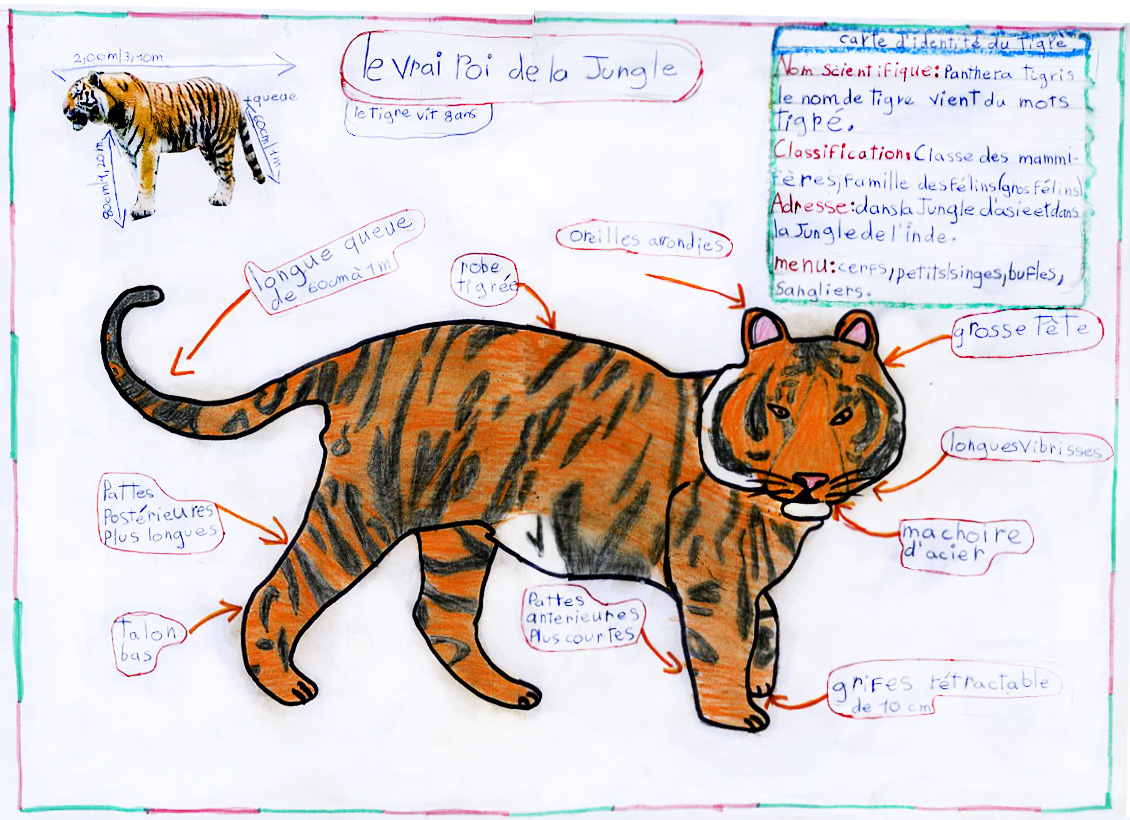 2,00m/3,10m
+queue
60cm/1m
80cm/1,20m
le vrai roi de la Jungle
le tigre vit 8 ans
carte d'identité du tigre
Nom Scientifique: Panthera tigris
le nom de tigre vient du mots
tigré.
Classification: Classe des mammi-
fères, famille des félins (gros félins)
Adresse: dans la Jungle d'asie et dans
la Jungle de l'inde.
menu: cerfs, petits singes, bufles,
Sangliers.
longue queue
de 60cm à 1m
robe
tigrée
oreilles arrondies
grosse tête
longues vibrisses
machoire
d'acier
Pattes
Postérieures
Plus longues
talon
bas
Pattes
anterieures
Plus courtes
grifes rétractable
de 10 cm